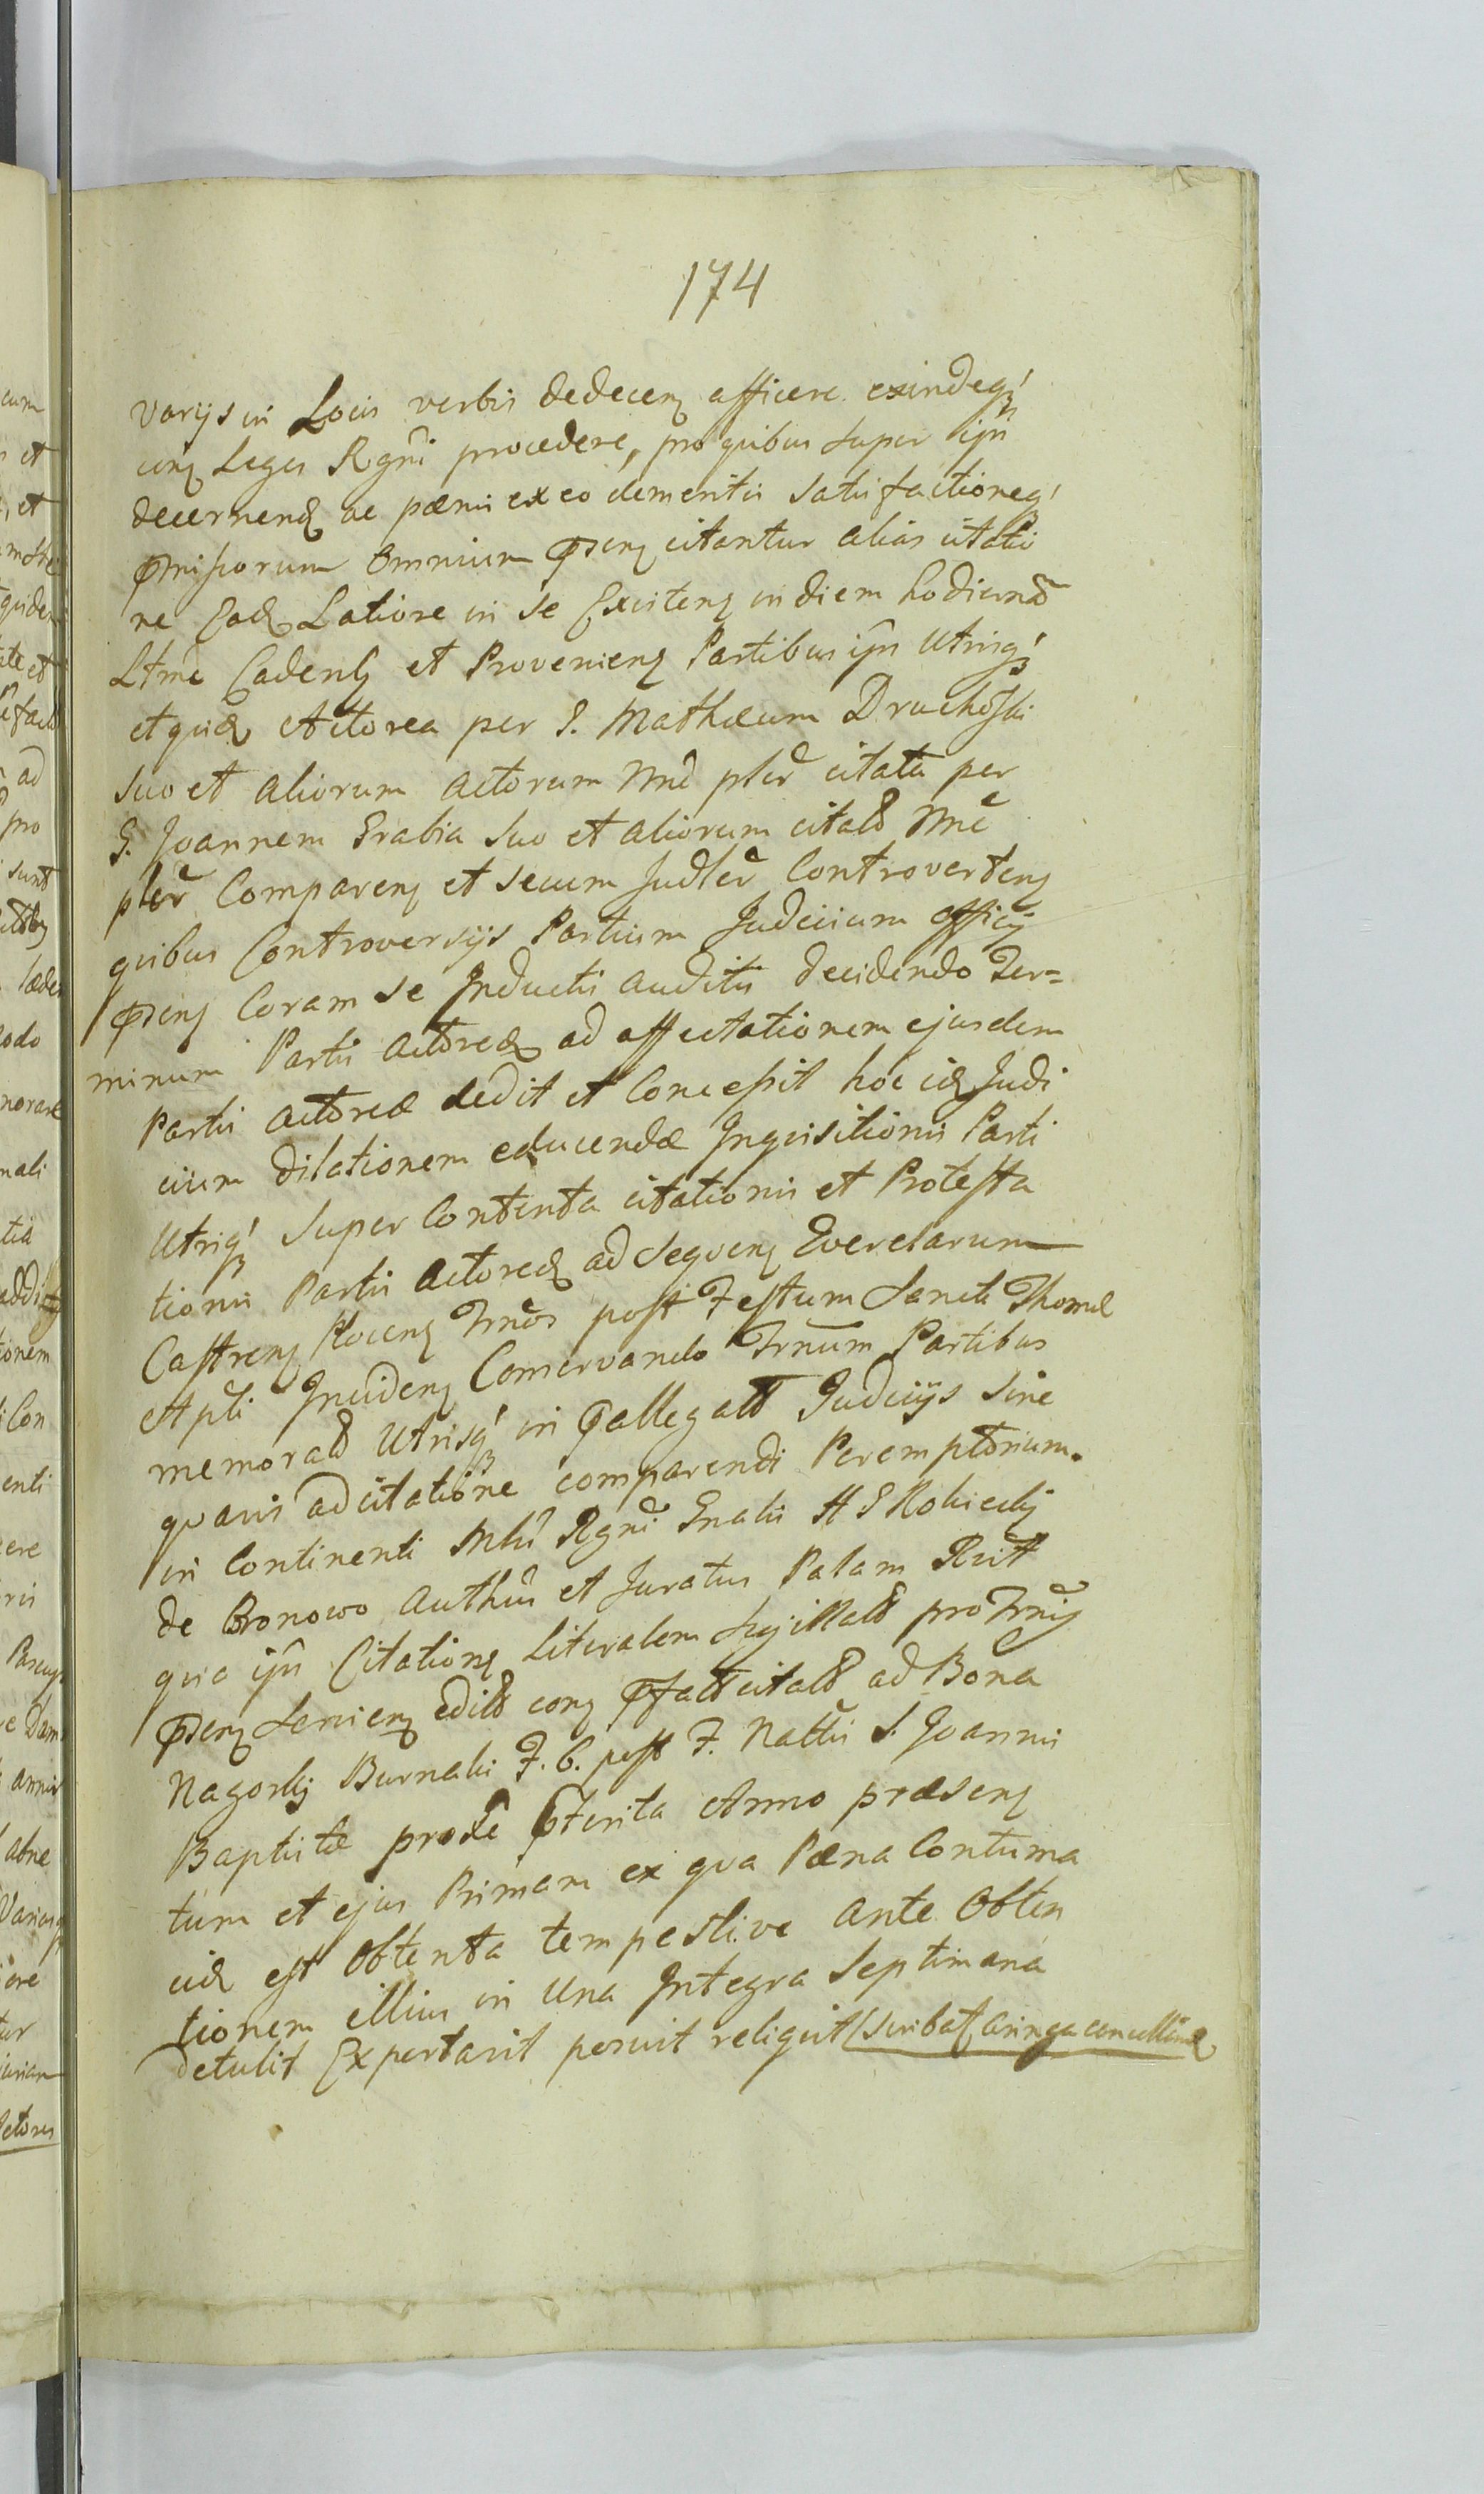 174
varijs in Locis verbis dedecenȝ afficere exindeqȝ
conȝ Leges Rgni procedere, pro quibus super ipis
decernenȝ ac pænis ex eo demeritis satisfactioneqȝ
pmissorum omnium psenȝ citantur alias citatio
ne Eadȝ Latiore in se Existenȝ in diem hodiernã
Ltme Cadenȝ et Provenienȝ Partibus ipis Utrisqȝ
et quidȝ Actorea per G. Mathæum Druchoski
suo et aliorum actorum nne pler citata per
G. Joannem Grabia suo et aliorum citatȝ nne
pler Comparenȝ et secum Judler Controvertenȝ
quibus Controversijs Partium Judicium officij
psenȝ Coram se Inductis auditis decidendo Ter=
minum Partis actoreæ ad affectationem ejusdem
Partis actoreæ dedit et Concessit hoc idȝ Judi
cium dilationem educendæ Inquisitionis Parti
Utriqȝ super Contenta citationis et Protesta
tionis Partis actoreæ ad sequenȝ Querelarum
Castrenȝ Plocenȝ Trnos post Festum Sancti Thomæ
Apli Incidenȝ Conservando Trnum Partibus
memoratȝ Utrisqȝ in pallegatȝ Judicijs sine
quavis adcitatione comparendi Peremptorium.
in Continenti Mltis Rgni Gnalis A S Rokickj
de Bronowo Authus et Juratus Palam Rcit
quia ipis Citationȝ Literalem sigillatȝ pro Trnis
psenȝ servienȝ editȝ conȝ pfatȝ citatȝ ad Bona
Nagorkj Burnaki F. 6. post F. Nattis S. Joannis
Baptistæ proxe pterita Anno præsenȝ
tum et ejus Primam ex qua Pæna Contuma
cidȝ est obtenta tempestive ante obten
tionem illius in Una Integra septimana
detulit Exportavit posuit reliquit (scribatȝ aringa cancellariæ